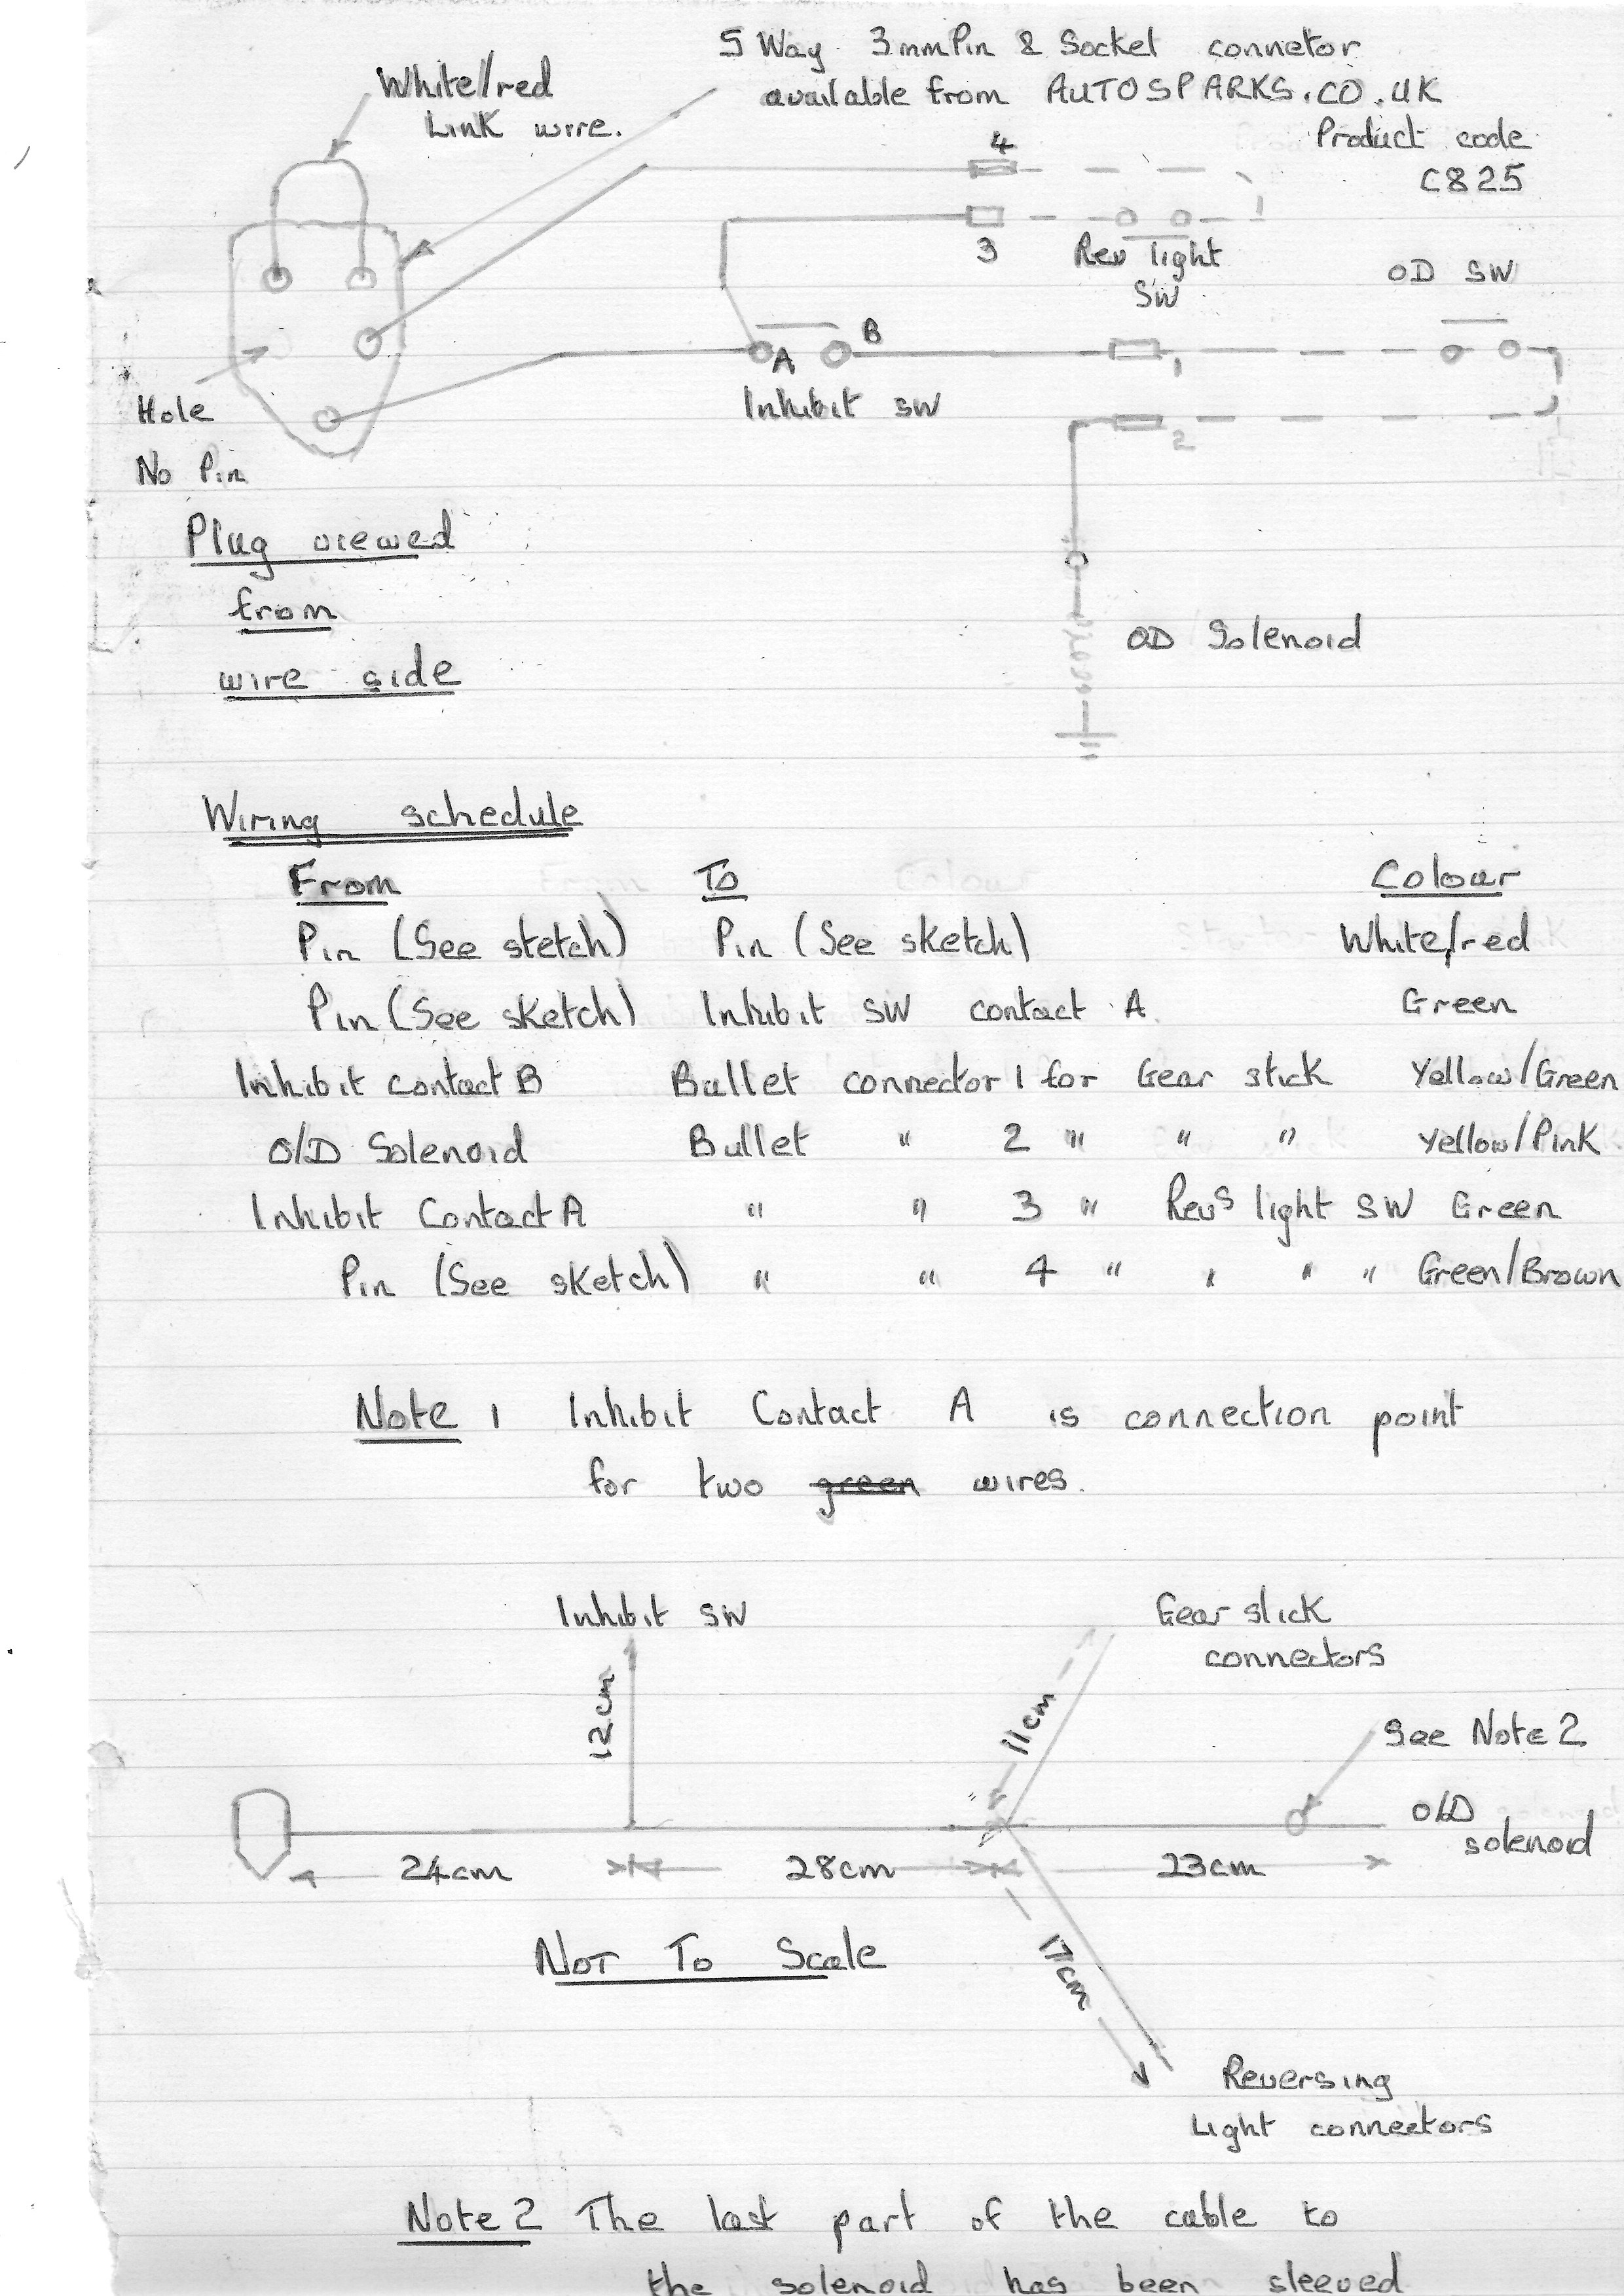 5 Way 3mm Pin & Socket connetor
available from AUTOSPARKS.CO.UK
Product code
C825
White/red
Link wire.
4
3
Rev light
SW
OD SW
A
B
Inhibit SW
1
2
Hole
No Pin
Plug viewed
from
wire side
OD Solenoid
Wiring schedule
From To Colour
Pin (See stetch) Pin (See sketch) White/red
Pin (See sketch) Inhibit SW contact A. Green
Inhibit contact B Bullet connector 1 for Gear stick Yellow/Green
O/D Solenoid Bullet " 2 " " " Yellow/Pink
Inhibit Contact A " " 3 " Revs light SW Green
Pin (See sketch) " " 4 " " " " Green/Brown
Note 1 Inhibit Contact A is connection point
for two green wires.
Inhibit SW
Gear stick
connectors
12cm
11cm
See Note 2
O/D
solenoid
24cm 28cm 23cm
Not To Scale
17cm
Reversing
Light connectors
Note 2 The last part of the cable to
the solenoid has been sleeved